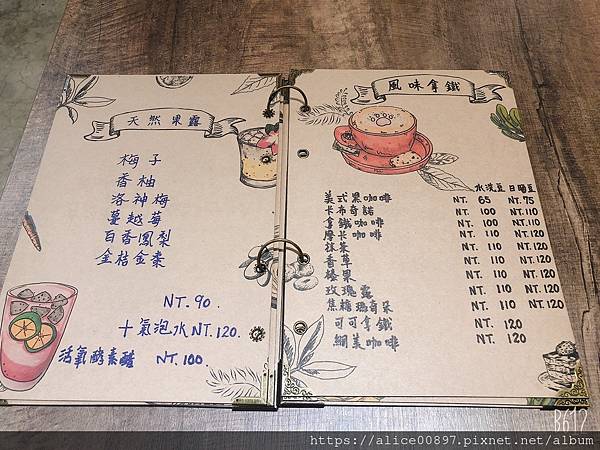 天然果露
梅子
香柚
洛神梅
蔓越莓
百香鳳梨
金桔金棗
NT.90.
十氣泡水NT.120.
活氧酵素醋 NT.100.
風味拿鐵
水洗豆 日曬豆
美式黑咖啡 NT. 65 NT.75
卡布奇諾 NT. 100 NT.110
拿鐵咖啡 NT. 100 NT.110
摩卡咖啡 NT. 110 NT.120
抹茶 NT. 110 NT.120
香草 NT. 110 NT.120
榛果 NT. 110 NT.120
玫瑰露 NT. 110 NT.120
焦糖瑪奇朵 NT. 110 NT.120
可可拿鐵 NT. 120
網美咖啡 NT. 120
B612
https://alice00897.pixnet.net/album